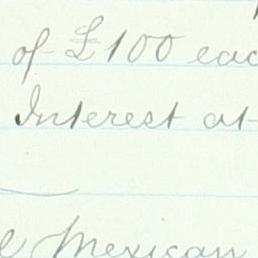 of £100 each
Interest at
Mexican